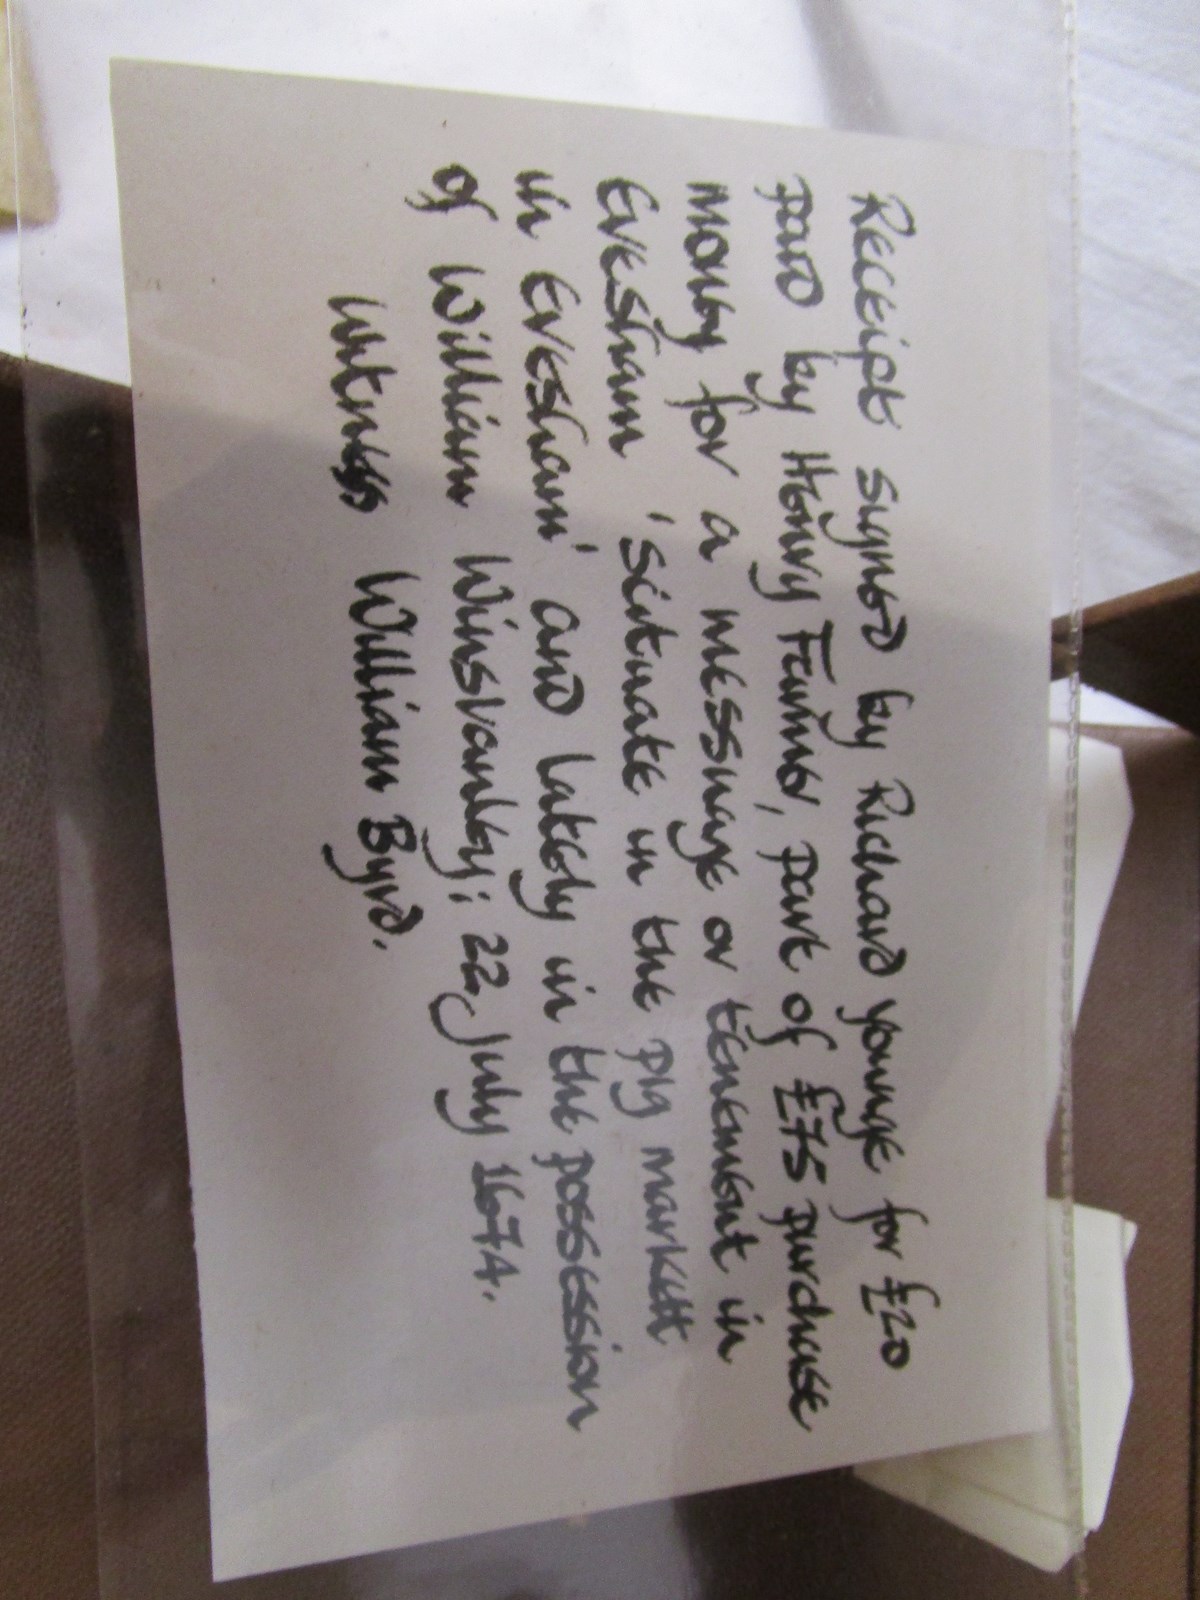 Receipt signed by Richard Younge for £20
paid by Henry Farmer, part of £75 purchase
money for a messuage or tenement in
Evesham 'scituate in the pig markett
in Evesham' and lately in the possession
of William Winsvanley; 22 July 1674.
Witness William Byrd.